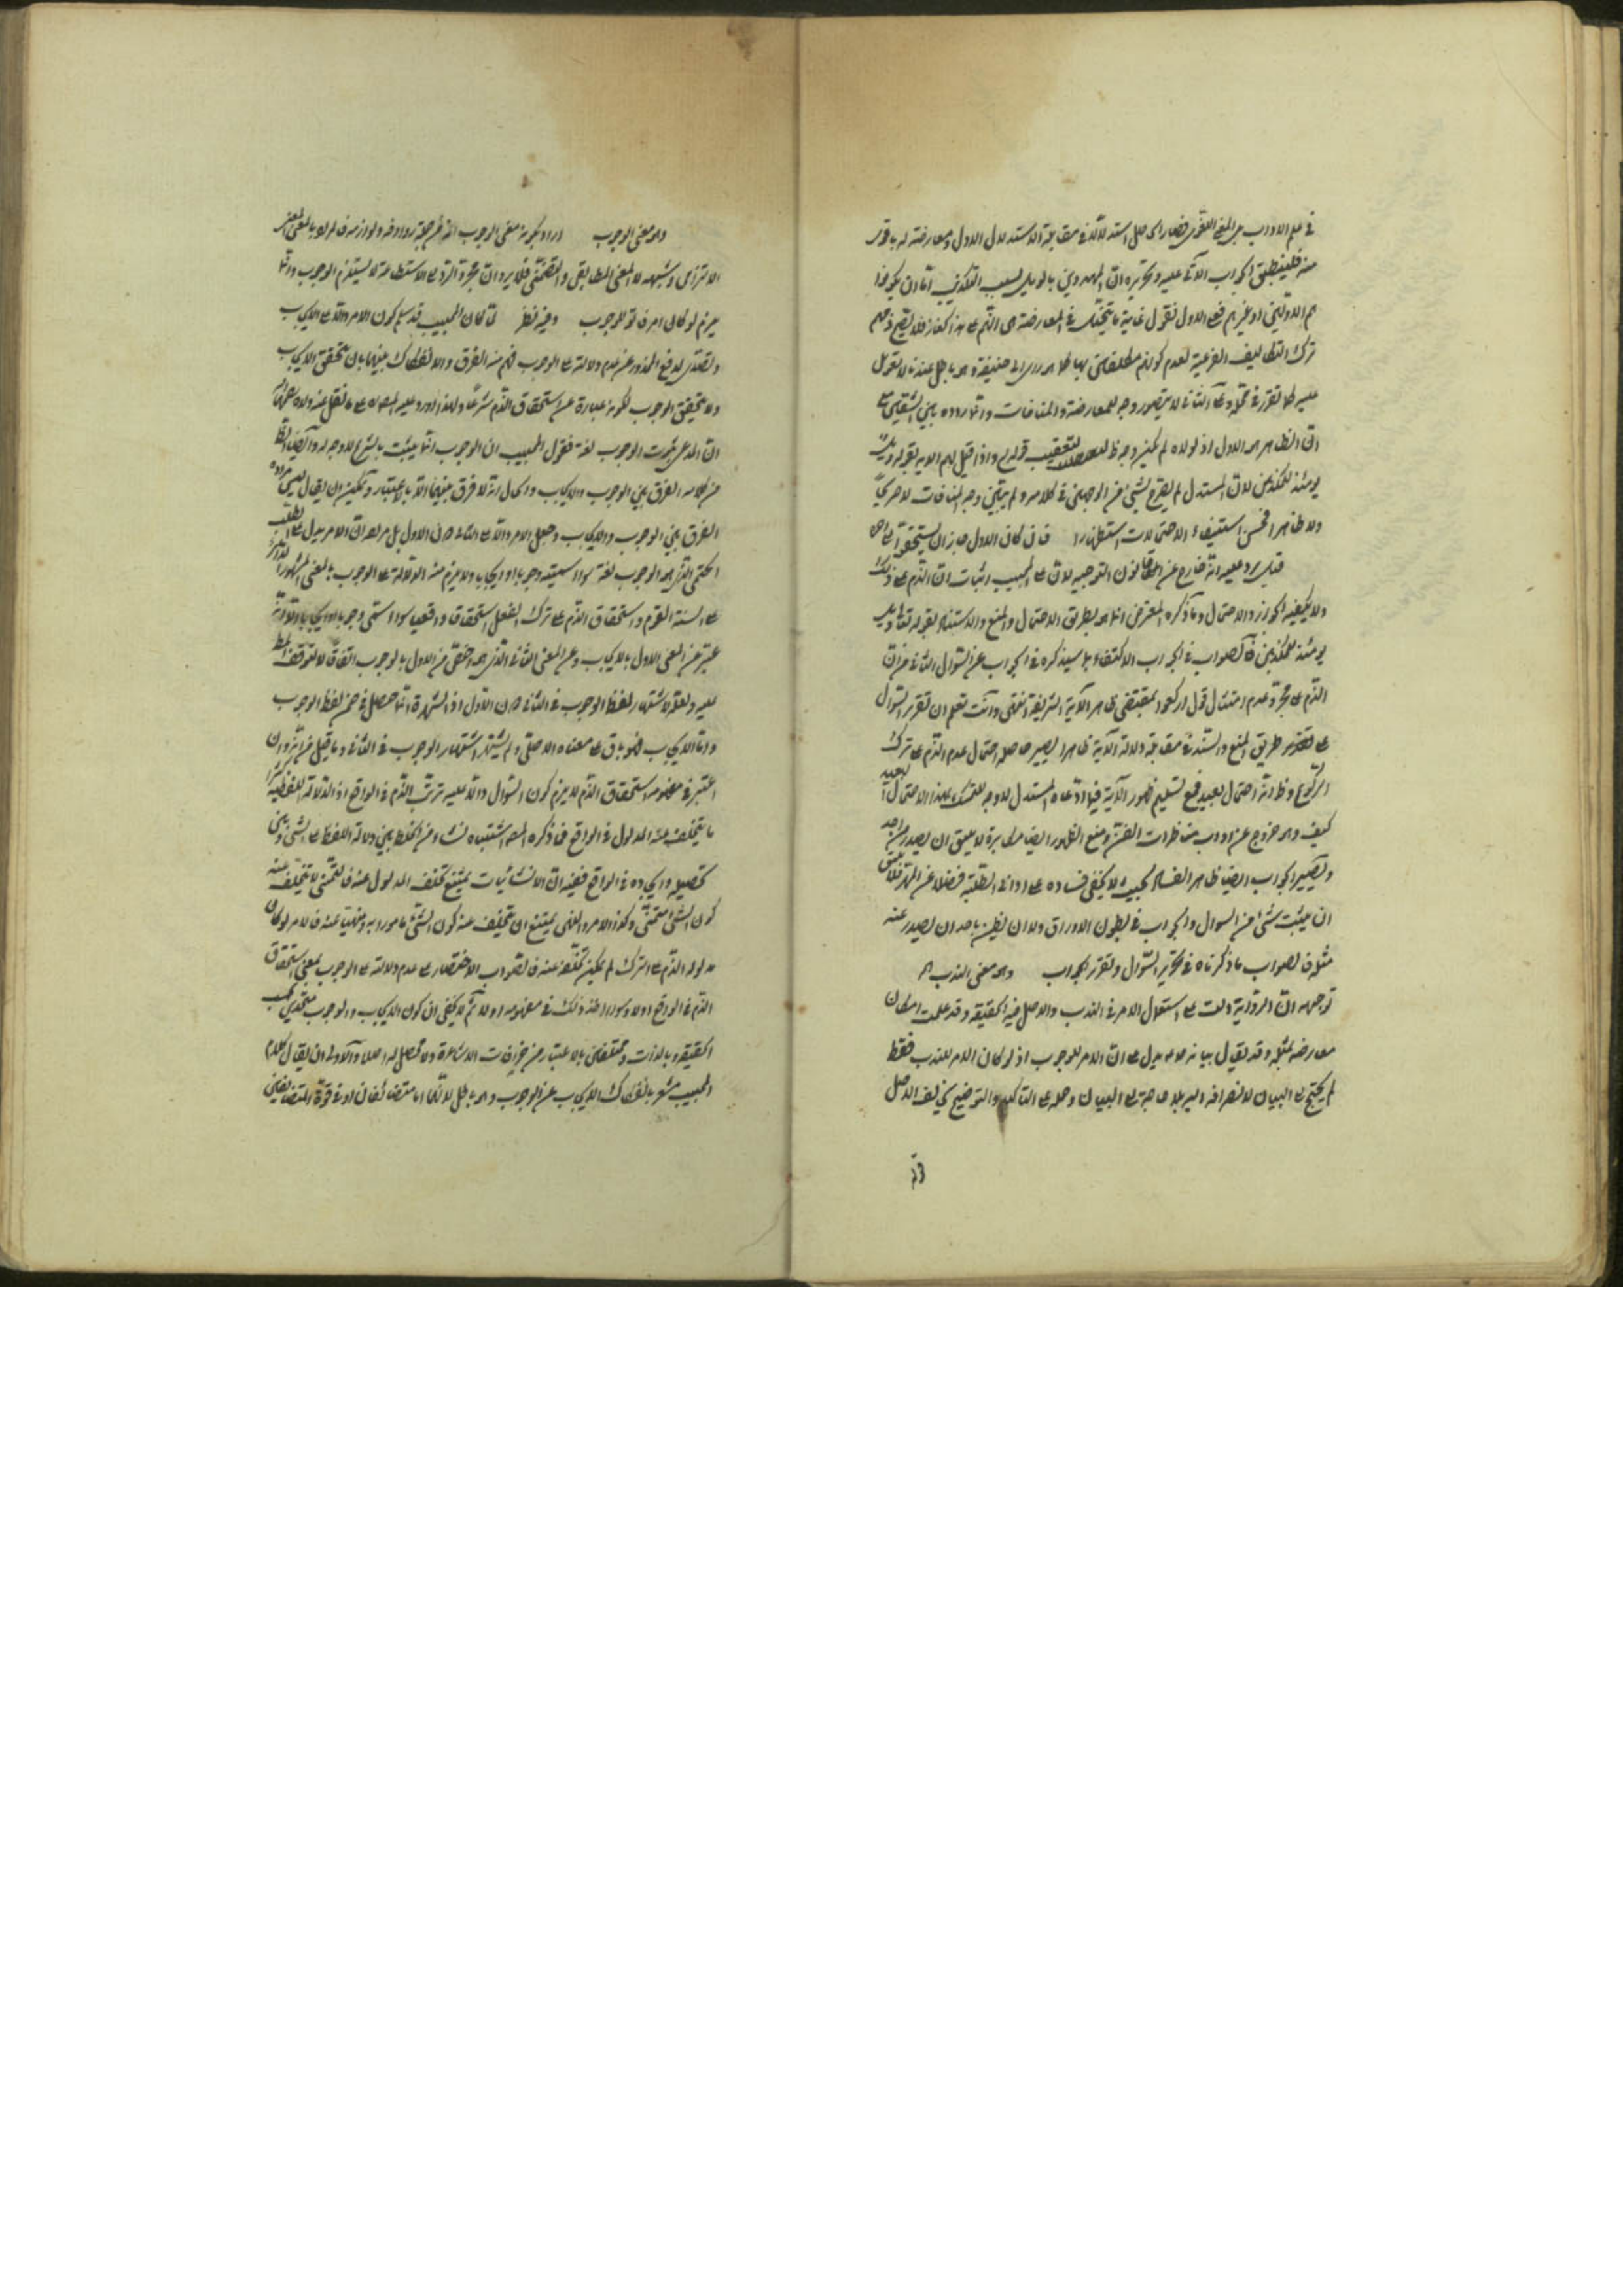 في علم الاداب بل المعنى اللغوي فصار الحاصل استدلالا في مقابلة الاستدلال الاول ومعارضته له باقوى
منه فلينطبق الجواب الآتي عليه وتحريره ان المهددين بالويل بسبب التكذيب اما ان يكونوا
هم الاولين او غيرهم فعلى الاول نقول غاية ما يتخيل في المعارضة هي الذم على هذا الكفار فلا يصح ذمهم
ترك التكاليف الفرعية لعدم كونهم مكلفين بها كما هو رأي ابي حنيفة وهو باطل عندنا لا تعويل
عليه كما تقرر في محله وعلى الثاني لا يتصور وجه للمعارضة والمنافات وانما ردده بين الشقين مع
ان الظاهر هو الاول اذ لولاه لم يكن وجه لتعقيب قوله واذا قيل لهم الآية بقوله ويل
يومئذ للمكذبين لان المستدل لم يصرح بشئ من الوجهين في كلامه ولم يتبين وجه المنافات لا صريحا
ولا ظاهرا فحسن استيفاء الاحتمالات استظهارا فان كان الاول جاز ان يستحقوا
قيل يرد عليه انه خارج عن قانون التوجيه لان على المجيب اثبات ان الذم على ذلك
ولا يكفيه الجواز والاحتمال وما ذكره المعترض انما هو بطريق الاحتمال والمنع والاستناد بقوله تعالى ويل
يومئذ للمكذبين فالصواب في الجواب الاكتفاء بما سيذكره في الجواب عن السؤال الثاني من ان
الذم على مجرد عدم امتثال قول اركعوا بمقتضى ظاهر الآية الشريفة انتهى وانت تعلم ان تقرير السؤال
على تقدير طريق المنع والسند في مقابلة دلالة الآية ظاهرا يصير حاصله احتمال عدم الذم على ترك
الركوع وظاهر انه احتمال بعيد فمع تسليم ظهور الآية فيما ادعاه المستدل لا وجه للتمسك بهذا الاحتمال البعيد
كيف وهو خروج عن اداب مناظرات الفن ومنع الظهور ايضا مكابرة لا يليق ان يصدر من احد
ويصير الجواب ايضا ظاهر الفساد بحيث لا يخفى فساده على اداني الطلبة فضلا عن المهرة فلا يليق
ان يثبت شئ من السؤال والجواب في بطون الاوراق ولا ان يظن باحد ان يصدر عنه
مثله فالصواب ما ذكرناه في تحرير السؤال وتقرير الجواب وهو معنى الندب
توجيهه ان الرواية دلت على استعمال الامر في الندب والاصل فيه الحقيقة وقد علمت امكان
معارضه بمثله وقد يقال بيانه يدل على ان الامر للوجوب اذ لو كان الامر للندب فقط
لم يحتج الى البيان لانصرافه اليه بلا حاجة الى البيان وحمله على التاكيد والتوضيح خلاف الاصل
وهو معنى الوجوب اراد بكونه معنى الوجوب انه من جهة روادفه ولوازمه فالمراد بالمعنى المعنى
الالتزامي وشبهه لا المعنى المطابقي والتضمني فلا يرد ان مجرد الرد الى الاستطاعة لا يستلزم الوجوب وانما
يلزم لو كان امر فاتوا للوجوب وفيه نظر لما كان المجيب قد سلم كون الامر دالا على الايجاب
وتصدى لدفع المحذور عن عدم دلالته على الوجوب فهم منه الفرق والانفكاك بينهما بان تحقق الايجاب
ولا يتحقق الوجوب لكونه عبارة عن استحقاق الذم شرعا ولهذا اورد عليه المص على ما نقل عنه ولده
ان المدعى ثبوت الوجوب لغة فقول المجيب ان الوجوب انما يثبت بالشرع لا وجه له وايضا الظاهر
من كلامه الفرق بين الوجوب والايجاب والحال انه لا فرق بينهما الا بالاعتبار ويمكن ان يقال ليس مراده
الفرق بين الوجوب والايجاب وجعل الامر دالا على الثاني دون الاول بل مراده ان الامر يدل على الطلب
الحتمي الذي هو الوجوب لغة سواء سميته وجوبا او ايجابا ولا يلزم منه الدلالة على الوجوب بالمعنى المشهور
على السنة القوم واستحقاق الذم على ترك الفعل استحقاقا واقعيا سواء سمي وجوبا او ايجابا الا انه
عبر عن المعنى الاول بالايجاب وعن المعنى الثاني الذي هو اخص من الاول بالوجوب اتفاقا لا لتوقف المط
عليه ولعله لاشتهار لفظ الوجوب في الثاني دون الاول اذ الشهرة انما حصل في ضمن لفظ الوجوب
واما الايجاب فهو باق على معناه الاصلي ولم يشتهر اشتهار الوجوب في الثاني وما قيل من انه وان
اعتبر في مفهومه استحقاق الذم لا يلزم كون السؤال دالا عليه ترتب الذم في الواقع اذ الدلالة اللفظية
ما يتخلف عنه المدلول في الواقع فما ذكره المص اشتباه نشاء من الخلط بين دلالة اللفظ على شئ وبين
تحصيله وايجاده في الواقع ففيه ان الانشائيات يمتنع تخلف المدلول عنه فالتمني لا يتخلف عنه
كون الشئ متمنى وكذا الامر والنهي يمتنع ان يتخلف عنه كون الشئ مامورا به ومنهيا عنه فالامر لو كان
مدلوله الذم على الترك لم يمكن تخلفه عنه فالصواب الاختصار على عدم دلالته على الوجوب بمعنى استحقاق
الذم في الواقع اولا وسواء اخذ ذلك في مفهومه اولا ثم لا يخفى ان كون الايجاب والوجوب متحدين بحسب
الحقيقة وبالذات ومختلفين بالاعتبار من جزافات الاشاعرة ولا محصل له اصلا والاولى ان يقال كلام
المجيب مشعر بانفكاك الايجاب عن الوجوب وهو باطل لانهما اما متضائفان او في قوة المتضائفين